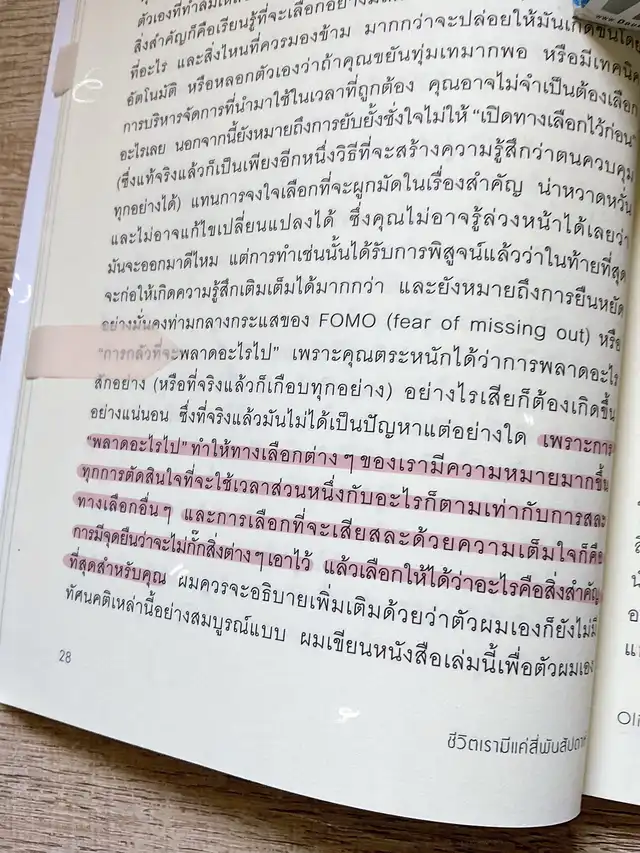 ตัวเองที่ทำลมเหลว
สิ่งสำคัญก็คือเรียนรู้ที่จะเลือกอย่าง
ที่อะไร และสิ่งไหนที่ควรมองข้าม มากกว่าจะปล่อยให้มันเกิดขึ้นโดย
อัตโนมัติ หรือหลอกตัวเองว่าถ้าคุณขยันทุ่มเทมากพอ หรือมีเทคนิค
การบริหารจัดการที่นำมาใช้ในเวลาที่ถูกต้อง คุณอาจไม่จำเป็นต้องเลือก
อะไรเลย นอกจากนี้ยังหมายถึงการยับยั้งชั่งใจไม่ให้ “เปิดทางเลือกไว้ก่อน”
(ซึ่งแท้จริงแล้วก็เป็นเพียงอีกหนึ่งวิธีที่จะสร้างความรู้สึกว่าตนควบคุม
ทุกอย่างได้) แทนการจงใจเลือกที่จะผูกมัดในเรื่องสำคัญ น่าหวาดหวั่น
และไม่อาจแก้ไขเปลี่ยนแปลงได้ ซึ่งคุณไม่อาจรู้ล่วงหน้าได้เลยว่า
มันจะออกมาดีไหม แต่การทำเช่นนั้นได้รับการพิสูจน์แล้วว่าในท้ายที่สุด
จะก่อให้เกิดความรู้สึกเติมเต็มได้มากกว่า และยังหมายถึงการยืนหยัด
อย่างมั่นคงท่ามกลางกระแสของ FOMO (fear of missing out) หรือ
“การกลัวที่จะพลาดอะไรไป” เพราะคุณตระหนักได้ว่าการพลาดอะไร
สักอย่าง (หรือที่จริงแล้วก็เกือบทุกอย่าง) อย่างไรเสียก็ต้องเกิดขึ้น
อย่างแน่นอน ซึ่งที่จริงแล้วมันไม่ได้เป็นปัญหาแต่อย่างใด เพราะการ
“พลาดอะไรไป” ทำให้ทางเลือกต่าง ๆ ของเรามีความหมายมากขึ้น
ทุกการตัดสินใจที่จะใช้เวลาส่วนหนึ่งกับอะไรก็ตามเท่ากับการสละ
ทางเลือกอื่น ๆ และการเลือกที่จะเสียสละด้วยความเต็มใจก็คือ
การมีจุดยืนว่าจะไม่กั๊กสิ่งต่าง ๆ เอาไว้ แล้วเลือกให้ได้ว่าอะไรคือสิ่งสำคัญ
ที่สุดสำหรับคุณ ผมควรจะอธิบายเพิ่มเติมด้วยว่าตัวผมเองก็ยังไม่มี
ทัศนคติเหล่านี้อย่างสมบูรณ์แบบ ผมเขียนหนังสือเล่มนี้เพื่อตัวผมเอง
28
ชีวิตเรามีแค่สี่พันสัปดาห์
Oli